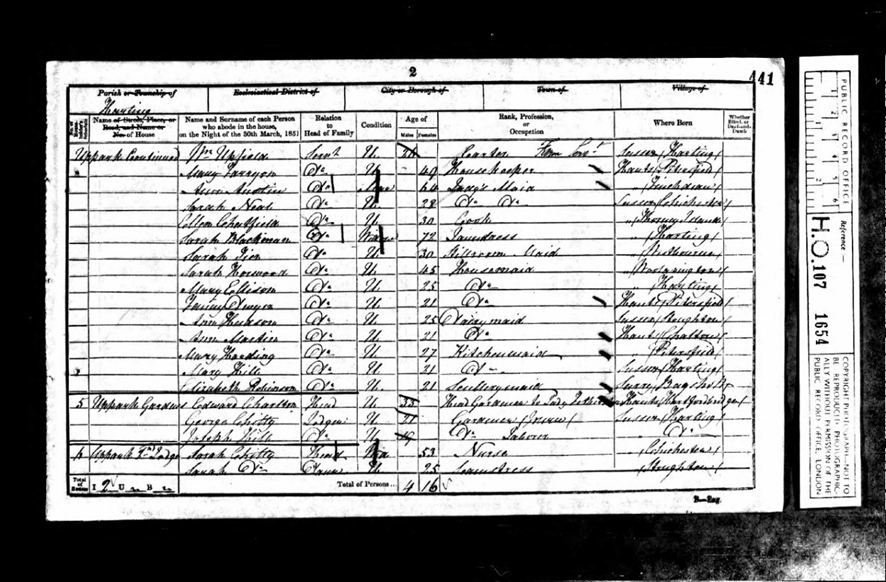 2
441
Parish or Township of
Ecclesiastical District of
City or Borough of
Town of
Village of
Harting
Name of Street, Place, or Road, and Name or No. of House
Name and Surname of each Person who abode in the house, on the Night of the 30th March, 1851
Relation to Head of Family
Condition
Age of
Males Females
Rank, Profession, or Occupation
Where Born
Whether Blind, or Deaf-and-Dumb
Uppark Continued Wm Upfield Servt U Carter Farm Servt Sussex Harting
Mary U 49 Housekeeper Hants Petersfield
Ann Austin Do 64 Lady's Maid
Sarah Neal Do U 28 Do Do Sussex Chichester
Ellen Chatfield Do U 30 Cook Thorney Island
Sarah Blackman Do 72 Laundress Harting
Sarah Do U 30 Stillroom Maid Westbourne
Sarah Do U 45 Housemaid
Mary Ellison Do U 25 Do Harting
Fanny Do U 21 Do Hants Petersfield
Ann Do U 25 Dairymaid Sussex Stoughton
Ann Martin Do U 21 Do Hants Chalton
Mary Harding Do U 27 Kitchenmaid Petersfield
Mary Hill Do U 21 Do Sussex Harting
Elizabeth Robinson Do U 21 Scullerymaid Surry Bagshot
5 Uppark Gardens Edward Charlton Head U 33 Head Gardener to Lady Hants Hartfordbridge
George Lodger U 21 Gardener Sussex Harting
Joseph Hill Do U 19 Do Labour Do
6 Uppark Lodge Sarah Head 53 Nurse Chichester
Sarah Do U 25 Seamstress Stoughton
Total of Houses I 2 U B
Total of Persons 4 16
B—Eng.
PUBLIC RECORD OFFICE
Reference:—
H.O. 107 1654
COPYRIGHT PHOTOGRAPH—NOT TO BE REPRODUCED PHOTOGRAPHICALLY WITHOUT PERMISSION OF THE PUBLIC RECORD OFFICE, LONDON